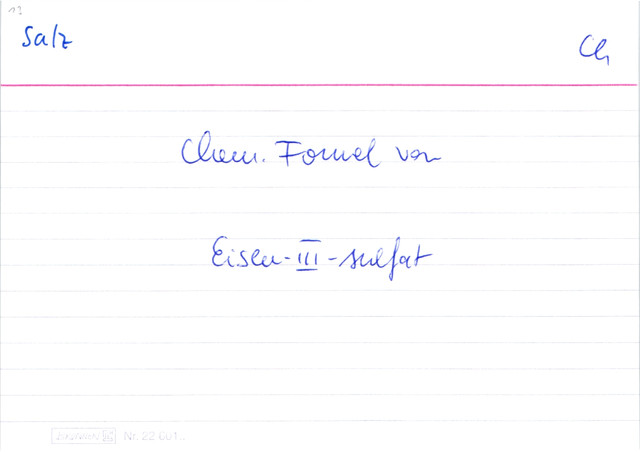 13
Salz
Ch
Chem. Formel von
Eisen-III-sulfat
BRUNNEN Nr. 22 601..